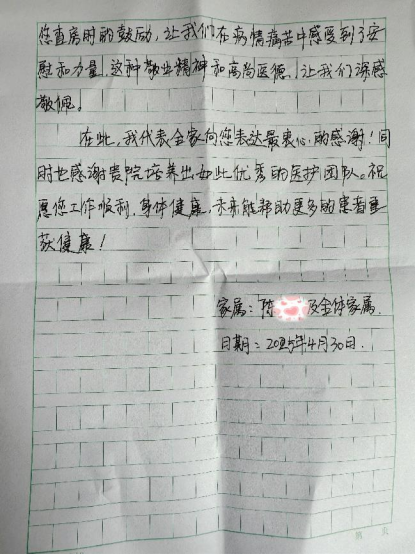 您查房时的鼓励，让我们在病情痛苦中感受到了安
慰和力量，这种敬业精神和高尚医德，让我们深感
敬佩。
在此，我代表全家向您表达最衷心的感谢！同
时也感谢贵院培养出如此优秀的医护团队。祝
愿您工作顺利，身体健康，未来能帮助更多的患者重
获健康！
家属：陈 及全体家属
日期：2025年4月30日.